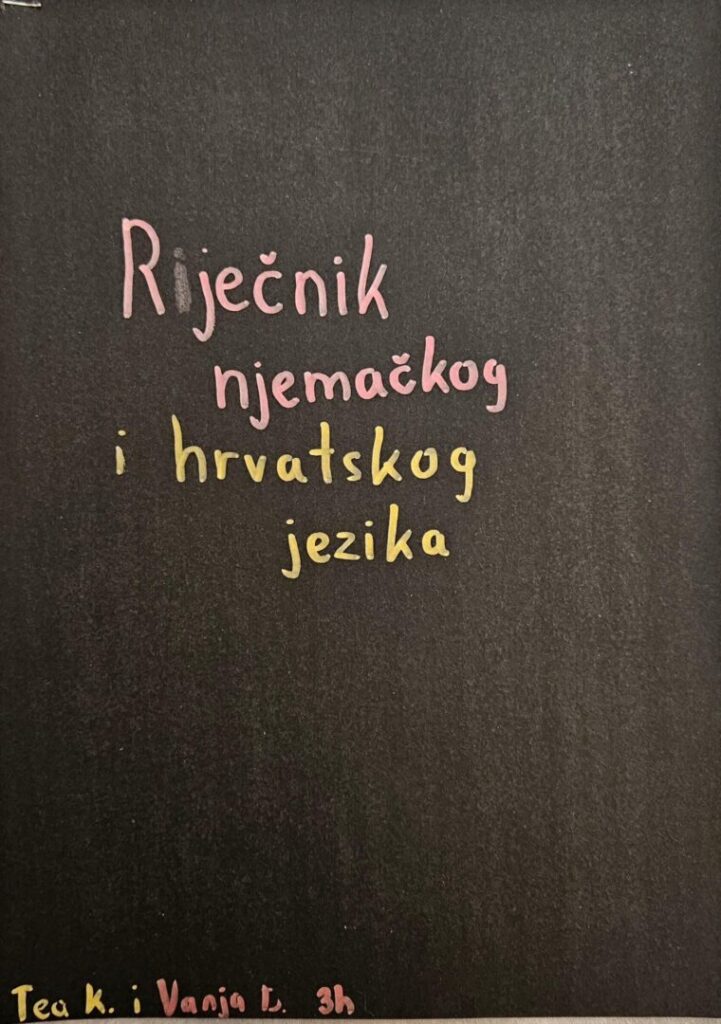 Rječnik
njemačkog
i hrvatskog
jezika
Tea K. i Vanja 3h